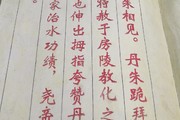 朱相见。丹朱跪拜
特赦于房陵教化之
也伸出拇指夸赞丹
家治水功绩，尧帝